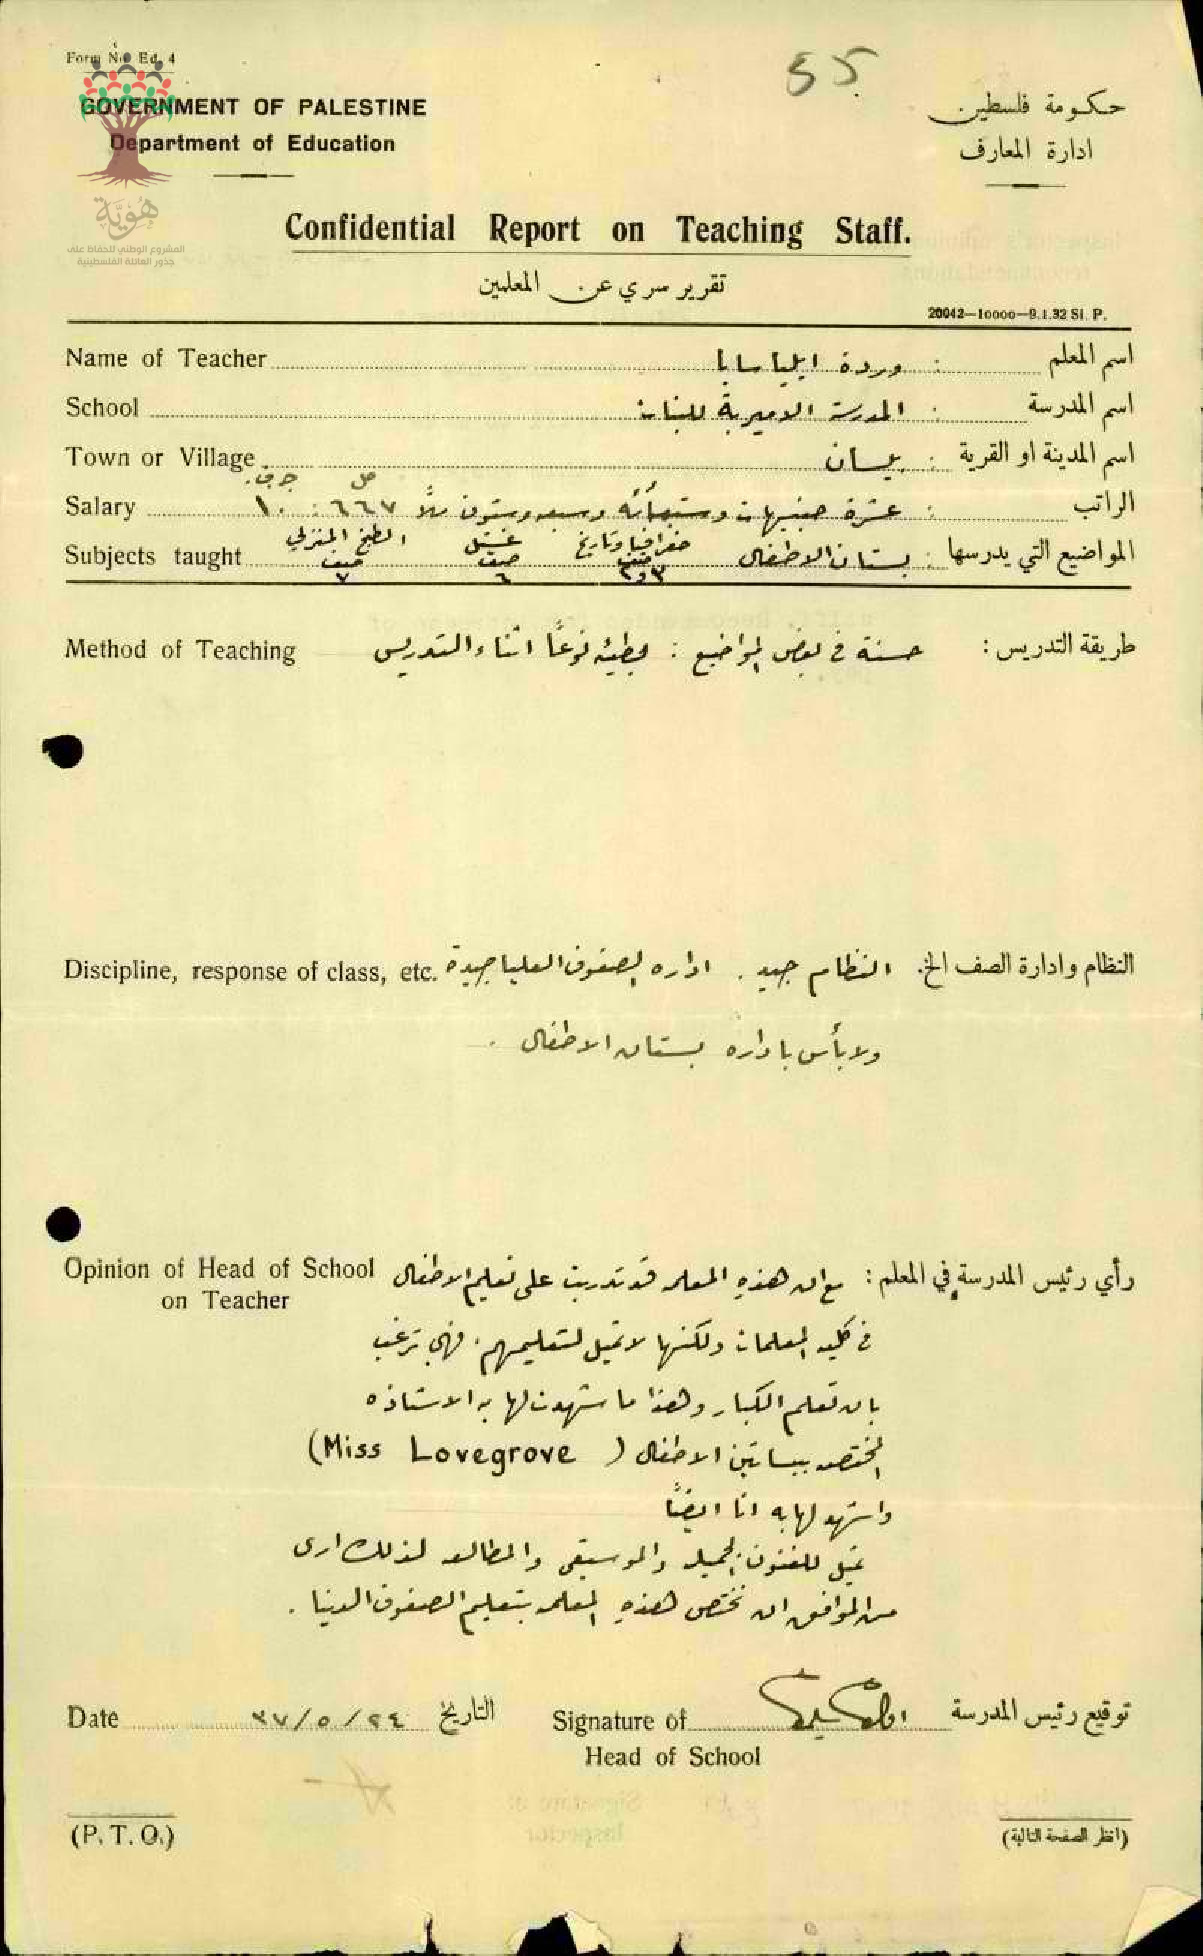 Form No. Ed. 4
55
GOVERNMENT OF PALESTINE
حكومة فلسطين
Department of Education
ادارة المعارف
هُويَّة
المشروع الوطني للحفاظ على
جذور العائلة الفلسطينية
Confidential Report on Teaching Staff.
تقرير سري عن المعلمين
20042—10000—9.1.32 Sl. P.
Name of Teacher وردة ايليا سابا : اسم المعلم
School المدرسة الاميرية للبنات : اسم المدرسة
Town or Village بيسان : اسم المدينة او القرية
Salary عشرة جنيهات وستمأئة وسبعه وستون ملاً ٦٦٧ : ١٠ : الراتب
مل ج.ف.
Subjects taught المواضيع التي يدرسها : بستان الاطفال جغرافيا وتاريخ غسيل الطبخ المنزلي
صف ٣ و٢ صف ٦ صف ٧
Method of Teaching طريقة التدريس : حسنة في بعض المواضيع : بطيئه نوعًا اثناء التدريس
Discipline, response of class, etc. النظام وادارة الصف الخ. النظام جيد . اداره الصفوف العليا جيدة
ولا بأس باداره بستان الاطفال .
Opinion of Head of School on Teacher رأي رئيس المدرسة في المعلم : مع ان هذه المعلمه قد تدربت على تعليم الاطفال
في كليه المعلمات ولكنها لا تميل لتعليمهم . فهي ترغب
بان تعلم الكبار وهذا ما شهدت لها به الاستاذه
المختصه ببساتين الاطفال (Miss Lovegrove)
واشهد لها به انا ايضًا
تميل للفنون الجميله والموسيقى والمطالعه لذلك ارى
من الموافق ان تختص هذه المعلمه بتعليم الصفوف الدنيا .
Date ٣٧/٥/٢٤ التاريخ
Signature of Head of School توقيع رئيس المدرسة
(P. T. O.)
(انظر الصفحة التالية)